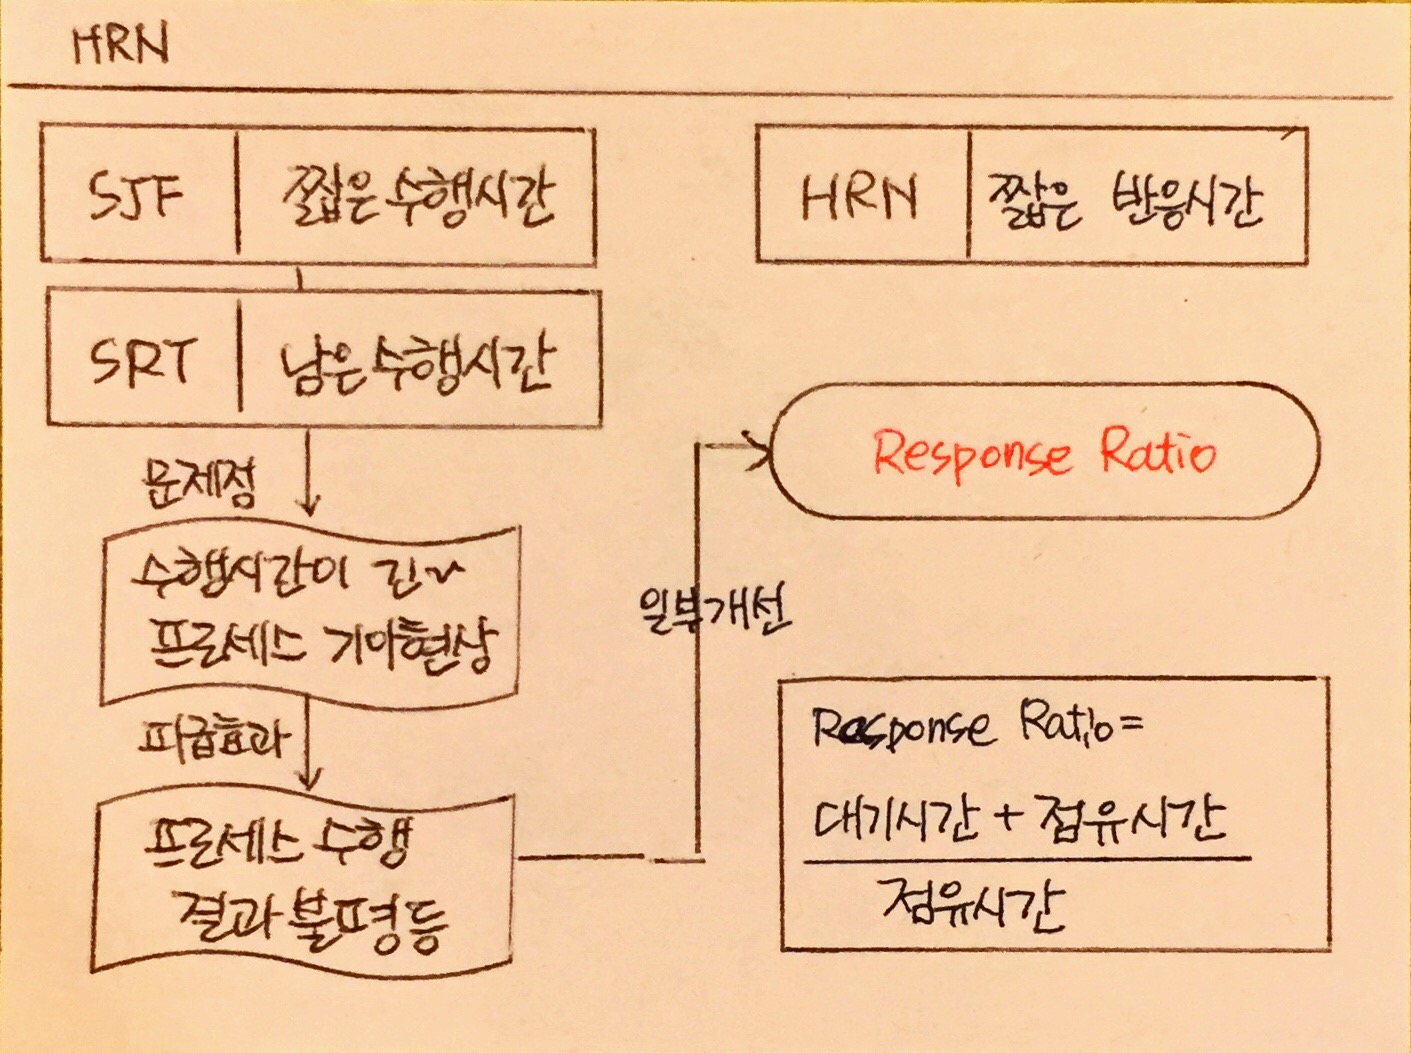 HRN
SJF 짧은수행시간
SRT 남은수행시간
문제점
수행시간이 긴
프로세스 기아현상
파급효과
프로세스 수행
결과불평등
HRN 짧은 반응시간
Response Ratio
일부개선
Response Ratio=
대기시간 + 점유시간
점유시간